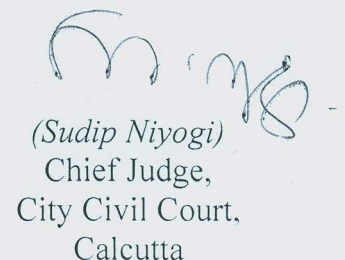 (Sudip Niyogi)
Chief Judge,
City Civil Court,
Calcutta